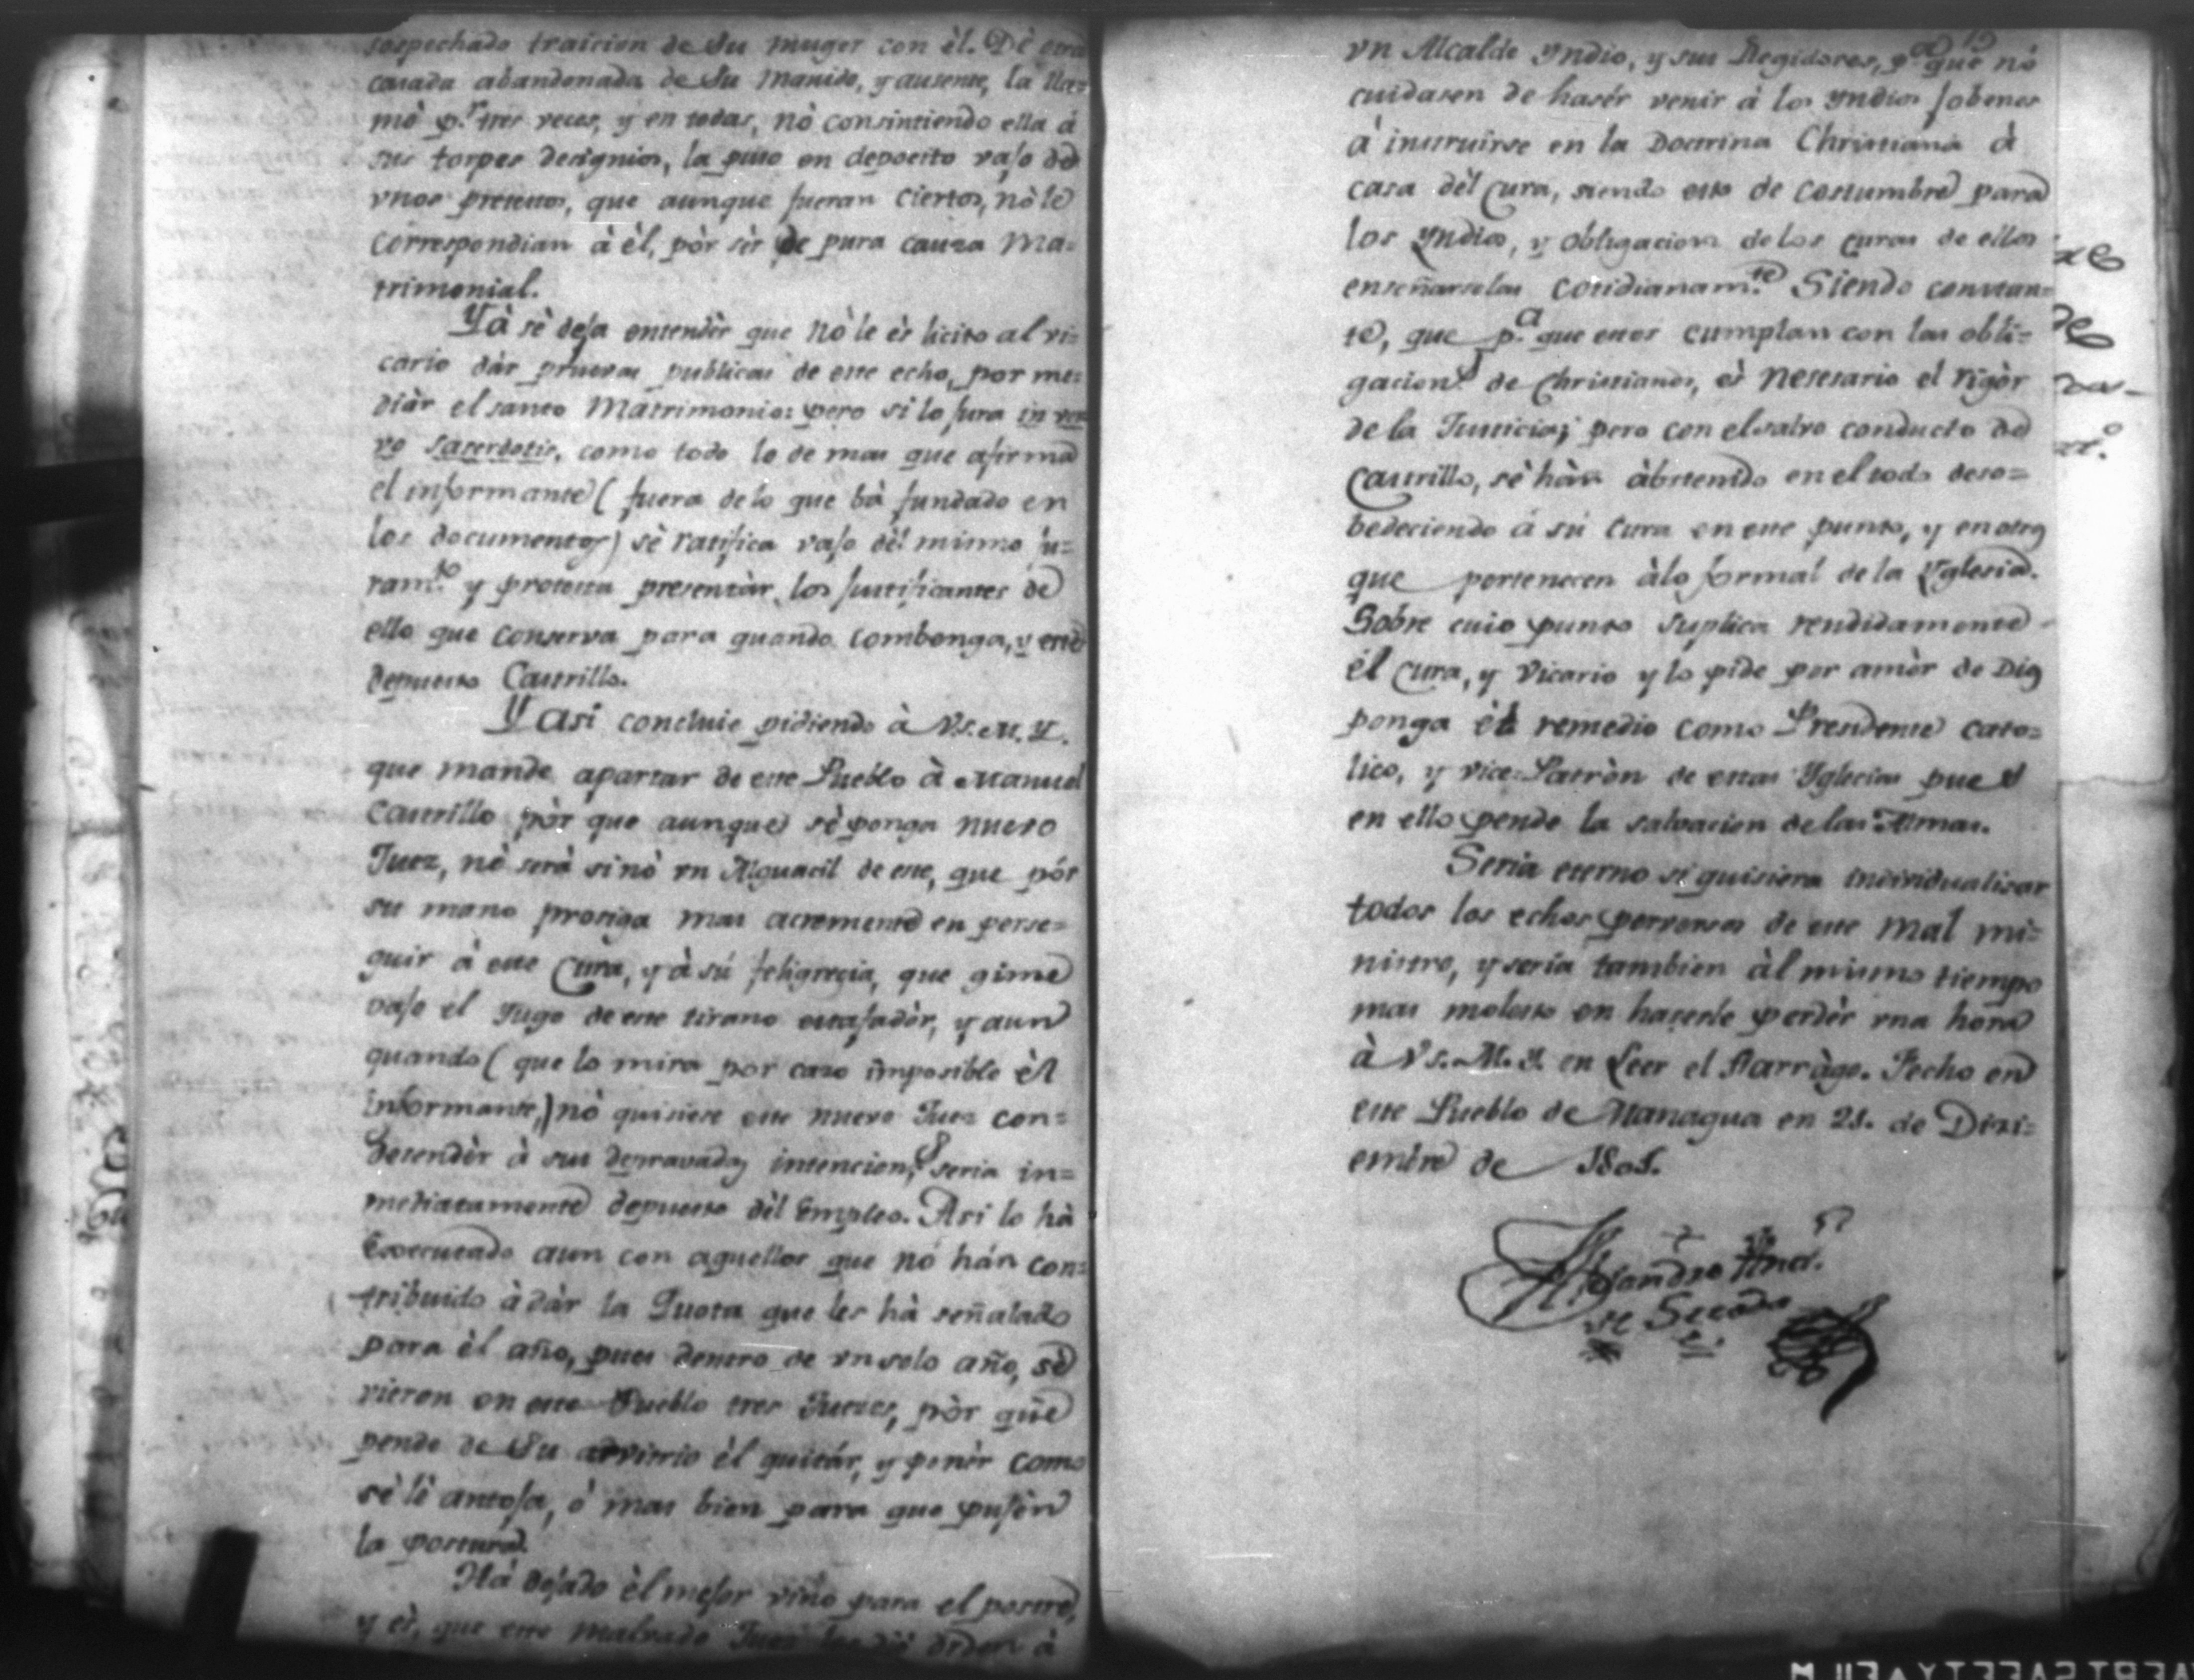 sospechado traicion de su muger con èl. Dè otra
casada abandonada de su marido, y ausente, la lla=
mò p.r tres veces, y en todas, nò consintiendo ella á
sus torpes designios, la puso en deposito vajo de
vnos pretextos, que aunque fueran ciertos, nò le
correspondian à èl, pòr sèr de pura causa Ma=
trimonial.
Yà sè deja entendèr que nò le ès licito al vi=
cario dàr pruevas publicas de este echo, por me=
diàr el santo Matrimonio: pero si lo jura in ver
vo sacerdotis, como todo lo de mas que afirma
el informante (fuera de lo que bà fundado en
los documentos) sè ratifica vajo dèl mismo ju=
ram.to y protesta presentàr los justificantes de
ello que conserva para quando combenga, y estè
depuesto Castrillo.
Y asi concluie pidiendo à Vs. M. Y.
que mande apartar de este Pueblo à Manuel
Castrillo pòr que aunque sè ponga nuevo
Juez, nò serà sinò vn Alguacil de este, que pór
su mano prosiga mas acremente en perse=
guir à este Cura, y à sù feligrecia, que gime
vajo el Jugo de este tirano estafadòr, y aun
quando (que lo mira por caso imposible èl
informante,) nò quisiese este nuevo Juez con=
desendèr à sus depravadas intencion.s seria in=
mediatamente depuesto dèl Empleo. Asi lo hà
Executado aun con aquellos que nò hán con=
tribuido à dàr la Quota que les hà señalado
para èl año, pues dentro de vn solo año, sè
vieron en este Pueblo tres Jueces, pòr qûe
pende de su arvitrio èl quitár, y ponèr como
sè lè antoja, ò mas bien para que pujen
la postura.
Há dejado èl mejor vino para el postre,
y ès, que este malvado Juez les diò orden à
vn Alcalde Yndio, y sus Regidores, p.a que nò
cuidasen de hasér venir à los Yndios jobenes
à instruirse en la Doctrina Christiana à
casa dèl Cura, siendo esto de costumbre para
los Yndios, y obligacion de los curas de ellos
enseñarselas cotidianam.te Siendo constan=
te, que p.a que estos cumplan con las obli=
gacion.s de Christianos, ès nesesario el rigòr
de la Justicia; pero con el salvo conducto de
Castrillo, sè hàn àbstenido en el todo deso=
bedeciendo à sù Cura en este punto, y en otros
que pertenecen àlo formal de la Yglesia.
Sobre cuio punto suplica rendidamente
él Cura, y Vicario y lo pide por amòr de Dios
ponga èl remedio como Presidente cato=
lico, y vice-Patròn de estas Yglecias pues
en ello pende la salvacion de las Almas.
Seria eterno si quisiera individualisar
todos los echos perversos de este mal mi=
nistro, y sería tambien àl mismo tiempo
mas molesto en hacerle perdèr vna hora
à Vs. M. Y. en Leer el farràgo. Fecho en
este Pueblo de Managua en 21. de Dizi=
embre de 1801.